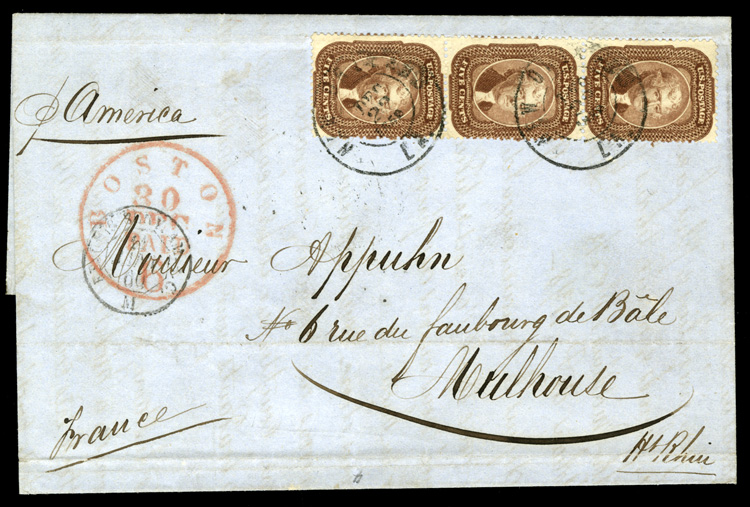 U.S. POSTAGE
FIVE CENTS
U.S. POSTAGE
FIVE CENTS
U.S. POSTAGE
FIVE CENTS
DEC
22
p America
BOSTON
30
PAID
Monsieur Appuhn
No 6 rue du faubourg de Bâle
Mulhouse
France
Ht Rhin